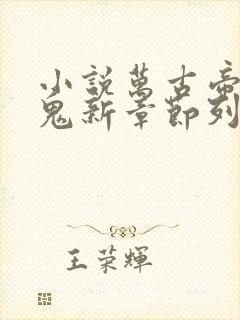 小說萬古帝
鬼新章節列
王荣輝